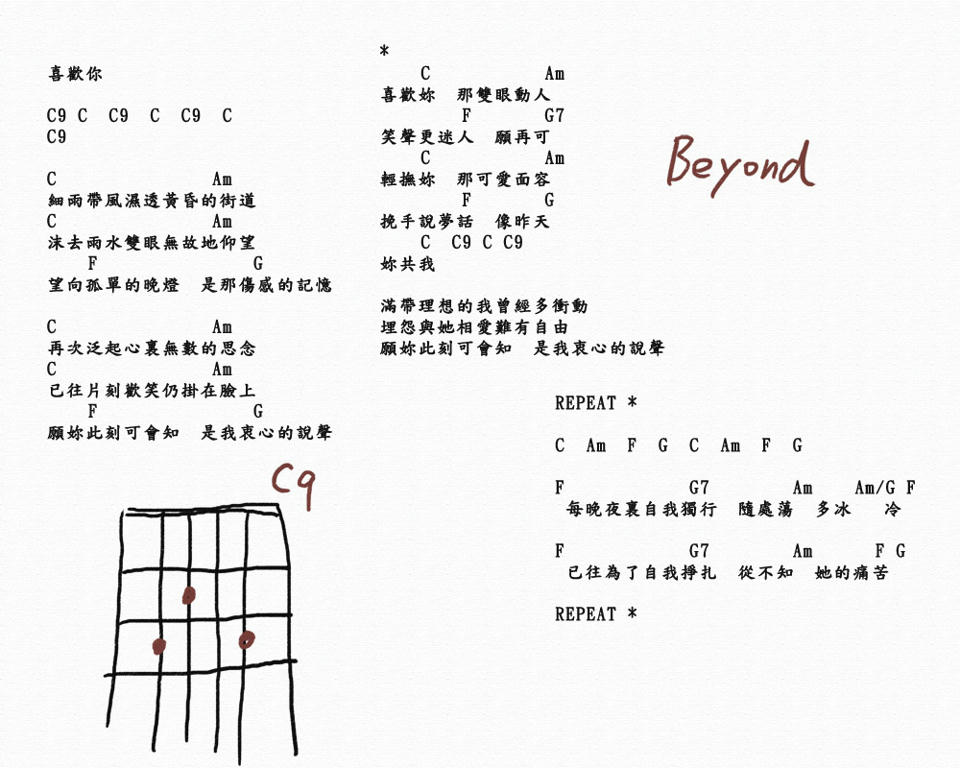 喜歡你
C9 C C9 C C9 C
C9
C Am
細雨帶風濕透黃昏的街道
C Am
沫去雨水雙眼無故地仰望
F G
望向孤單的晚燈 是那傷感的記憶
C Am
再次泛起心裏無數的思念
C Am
已往片刻歡笑仍掛在臉上
F G
願妳此刻可會知 是我衷心的說聲
*
C Am
喜歡妳 那雙眼動人
F G7
笑聲更迷人 願再可
C Am
輕撫妳 那可愛面容
F G
挽手說夢話 像昨天
C C9 C C9
妳共我
滿帶理想的我曾經多衝動
埋怨與她相愛難有自由
願妳此刻可會知 是我衷心的說聲
Beyond
REPEAT *
C Am F G C Am F G
F G7 Am Am/G F
每晚夜裏自我獨行 隨處蕩 多冰 冷
F G7 Am F G
已往為了自我掙扎 從不知 她的痛苦
REPEAT *
C9